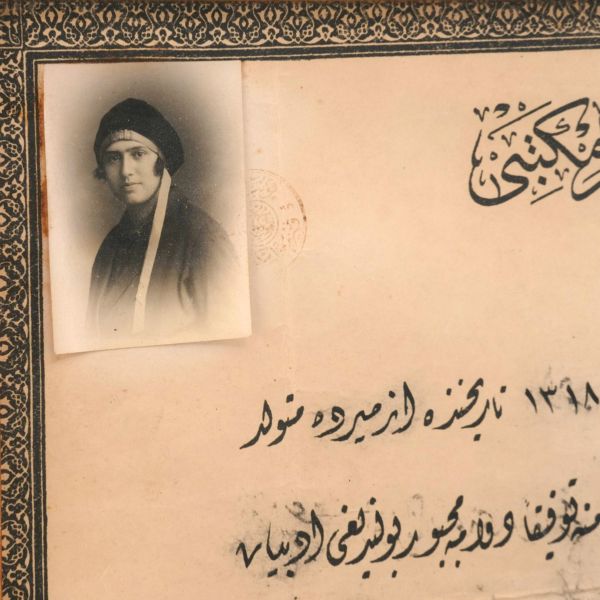 مكتبى
١٣١٨ تاريخنده ازميرده متولد
توفيقا دوامه مجبور بولنديغى ادبيات